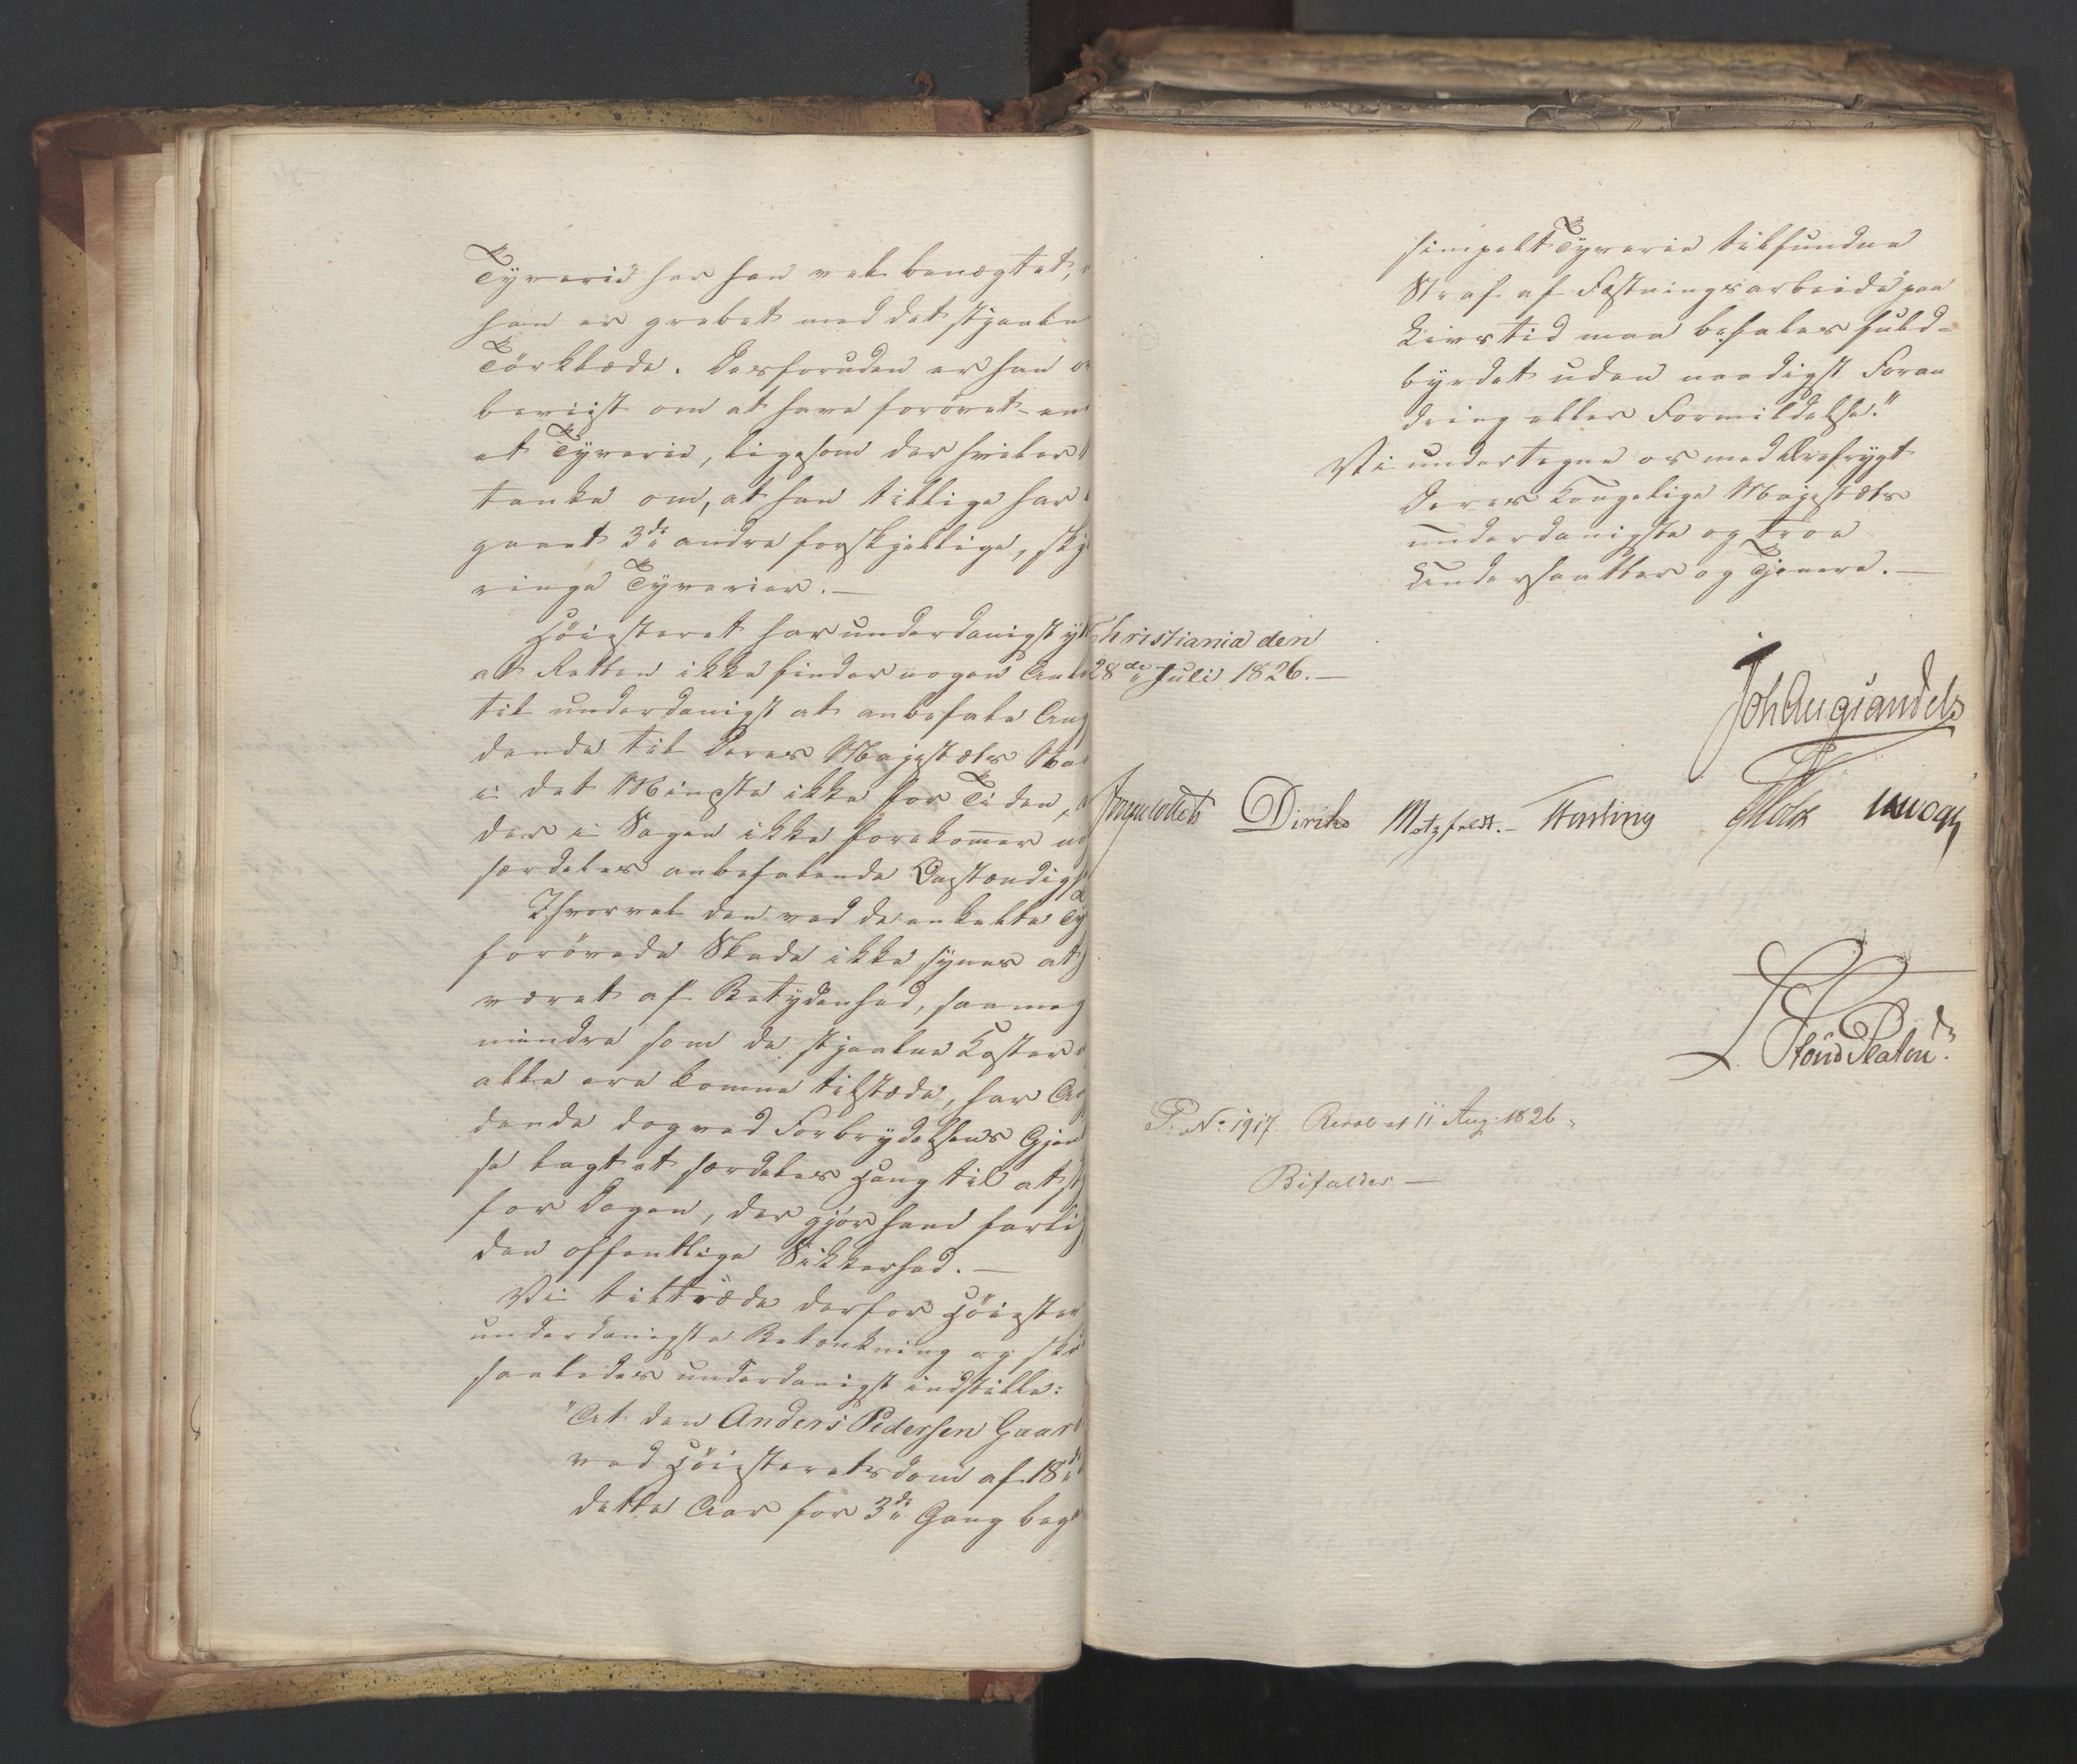 Tyverie har han vel benægtet,
han er grebet med det stjaalne
Törklæde. Desforuden er han
beviist om at have forövet en
et Tyverie, ligesom der hviler
tanke om, at han tillige har
gaaet 3de andre forskjellige,
ringe Tyverier.—
Höiesteret har underdanigst
at Retten ikke finder nogen
til underdanigst at anbefale
dende til Deres Majestæts
i det Mindste ikke for Tiden,
der i Sagen ikke forekommer
særdeles anbefalende
Ihvorvel den ved de enkelte
forövede Skade ikke synes at
været af Betydenhed,
mindre som de stjaalne Koster
alle ere komne tilstæde, har
dende dog ved Forbrydelsens
se lagt et særdeles Hang til at
for Dagen, der gjör ham
den offentlige Sikkerhed.—
Vi tiltræde derfor
underdanigste Betænkning og
saaledes underdanigst indstille:
"At den Anders Pedersen
ved Höiesteretsdom af 18
dette Aar for 3de Gang
simpelt Tyverie tilfundne
Straf af Fæstningsarbeide paa
Livstid maa befales fuld-
byrdet uden naadigst Foran
dring eller Formildelse."
Vi undertegne os med Ærefrygt
Deres Kongelige Majestæts
underdanigste og troe
Undersaatter og Tjenere.—
Christiania den
28de Juli 1826.—
Joh Aug Sandels
Diriks Motzfeldt.— Fasting
P. No. 1917. Resol. af 11 Aug. 1826.
Bifaldes—